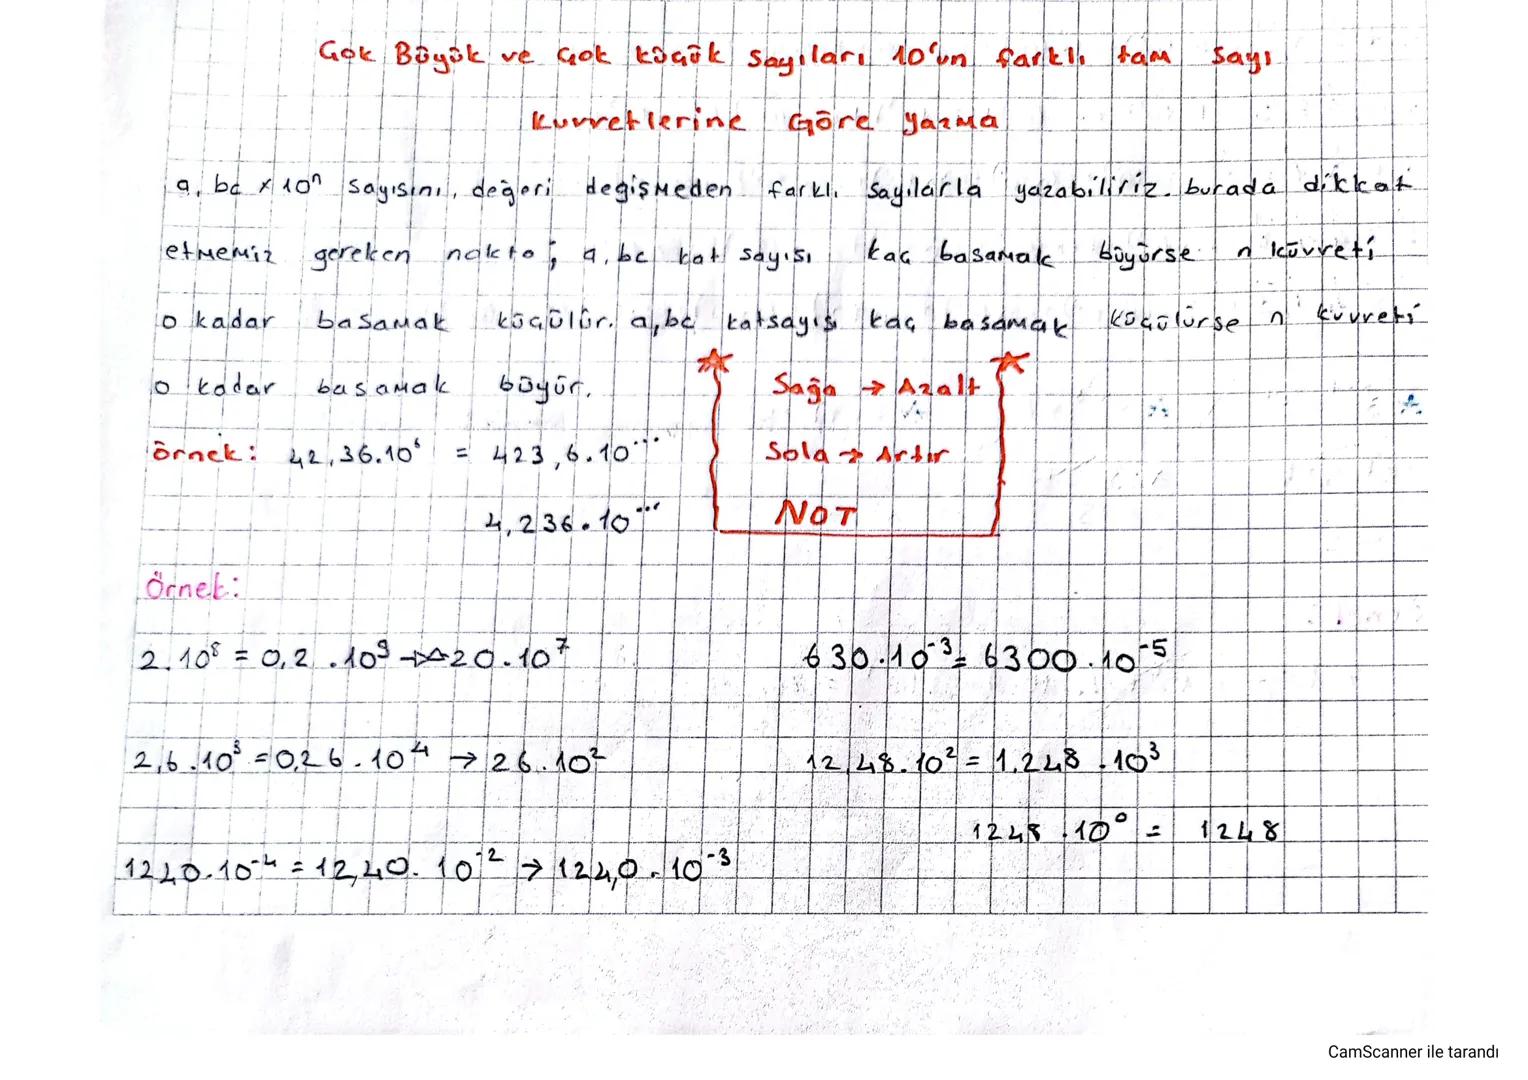 Çok Büyük ve Çok küçük Sayıları 10'un farklı tam Sayı
Kuvvetlerine Göre yazma
a,bc x 10ⁿ sayısını, değeri değişmeden farklı sayılarla yazabiliriz. burada dikkat
etmemiz gereken nokta; a,bc kat sayısı kaç basamak büyürse n küvveti
o kadar basamak küçülür. a,bc katsayısı kaç basamak küçülürse n küvveti
o kadar basamak büyür.
Sağa → Azalt
örnek: 42,36.10⁶ = 423,6.10^...
Sola → Artır
4,236.10^...
NOT
Örnek:
2.10⁸ = 0,2 .10⁹ → 20.10⁷
630.10⁻³ = 6300.10⁻⁵
2,6.10³ = 0,26.10⁴ → 26.10²
12,48.10² = 1,248.10³
1248.10⁰ = 1248
1240.10⁻⁴ = 12,40.10⁻² → 124,0.10⁻³
CamScanner ile tarandı